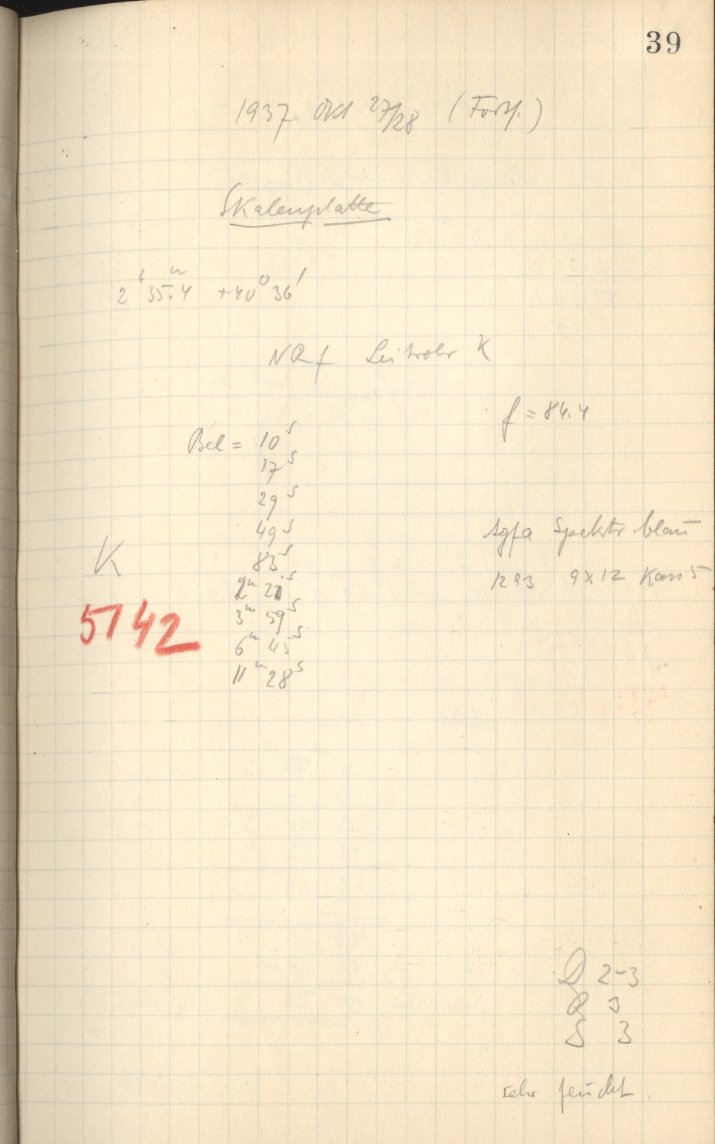 39
1937. Okt 27/28 (Forts.)
Skalenplatte
2ʰ 35ᵐ.4 +40° 36'
f Leitrohr K
f = 84.4
Bel = 10ˢ
17ˢ
29ˢ
49ˢ
83ˢ
2ᵐ 21ˢ
3ᵐ 59ˢ
6ᵐ 45ˢ
11ᵐ 28ˢ
K
5142
Agfa Spektr. blau
1293 9x12 Kass 5
D 2-3
R 3
S 3
sehr feucht.